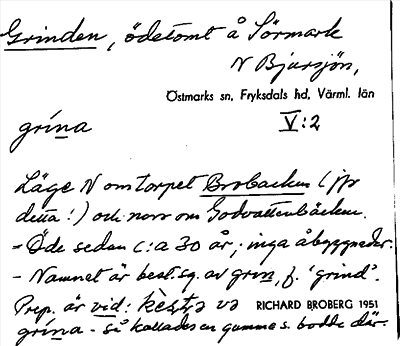 Grinden, ödetomt å Sörmark
N Bjursjön,
Östmarks sn, Fryksdals hd, Värml. län
grína V:2
Läge N om torpet Brobacken (jfr
detta!) och norr om Godvattenbäcken.
- Öde sedan c:a 30 år; inga åbyggnader.
- Namnet är best. sg. av grin, f. 'grind'.
Prep. är vid: va RICHARD BROBERG 1951
grína - så kallades en gumma s. bodde där.